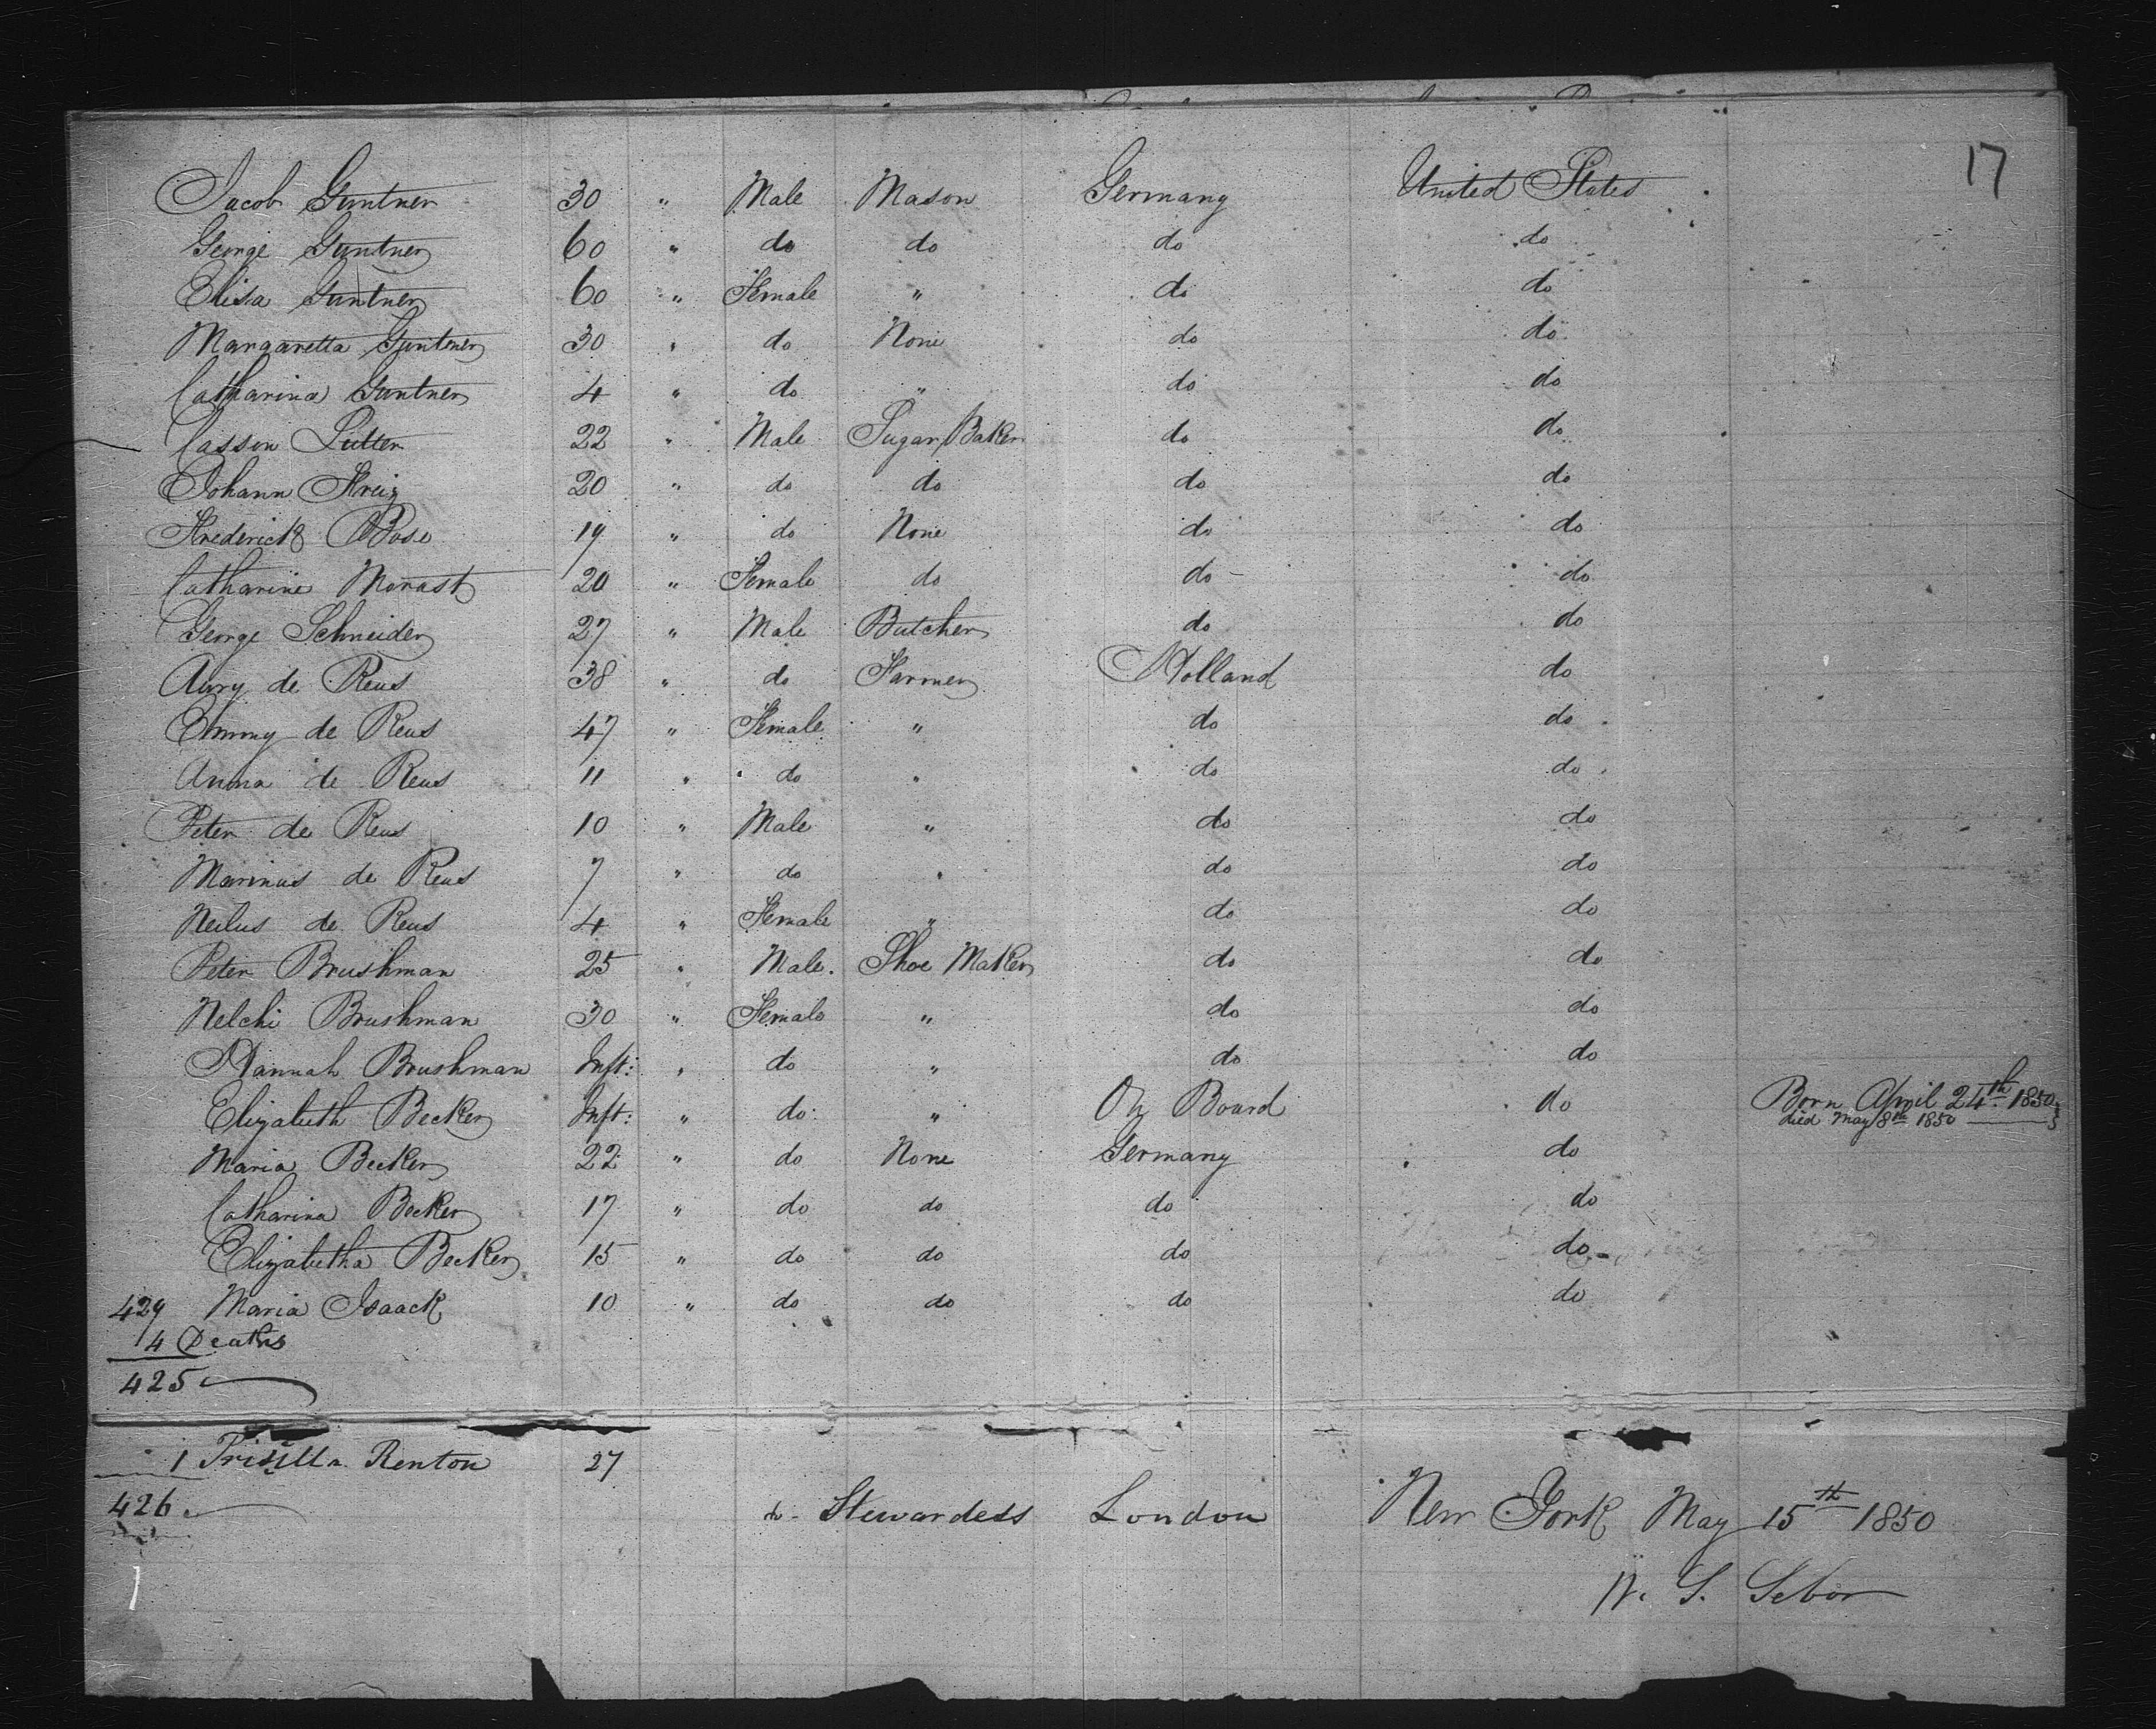 17
Jacob Guntner 30 " Male Mason Germany United States
George Guntner 60 " do do do do
Elisa Guntner 60 " Female " do do
Margaretta Guntner 30 " do None do do
Catharina Guntner 4 " do " do do
Casson Lutter 22 " Male Sugar Baker do do
Johann Streig 20 " do do do do
Frederick Bose 19 " do None do do
Catharine Monast 20 " Female do do do
George Schneider 27 " Male Butcher do do
Avry de Reus 38 " do Farmer Holland do
Emmy de Reus 47 " Female " do do
Anna de Reus 11 " do " do do
Peter de Reus 10 " Male " do do
Marinus de Reus 7 " do " do do
Neilus de Reus 4 " Female " do do
Peter Brushman 25 " Male. Shoe Maker do do
Nelchi Brushman 30 " Female " do do
Hannah Brushman Inft: " do " do do
Elizabeth Becker Inft: " do " On Board do Born April 24th 1850
died May 8th 1850
Maria Becker 22 " do None Germany do
Catharina Becker 17 " do do do do
Elizabetha Becker 15 " do do do do
429 Maria Isaack 10 " do do do do
4 Deaths
425
1 Prisilla Renton 27
426 do Stewardess London New York May 15th 1850
W. G. Sebor